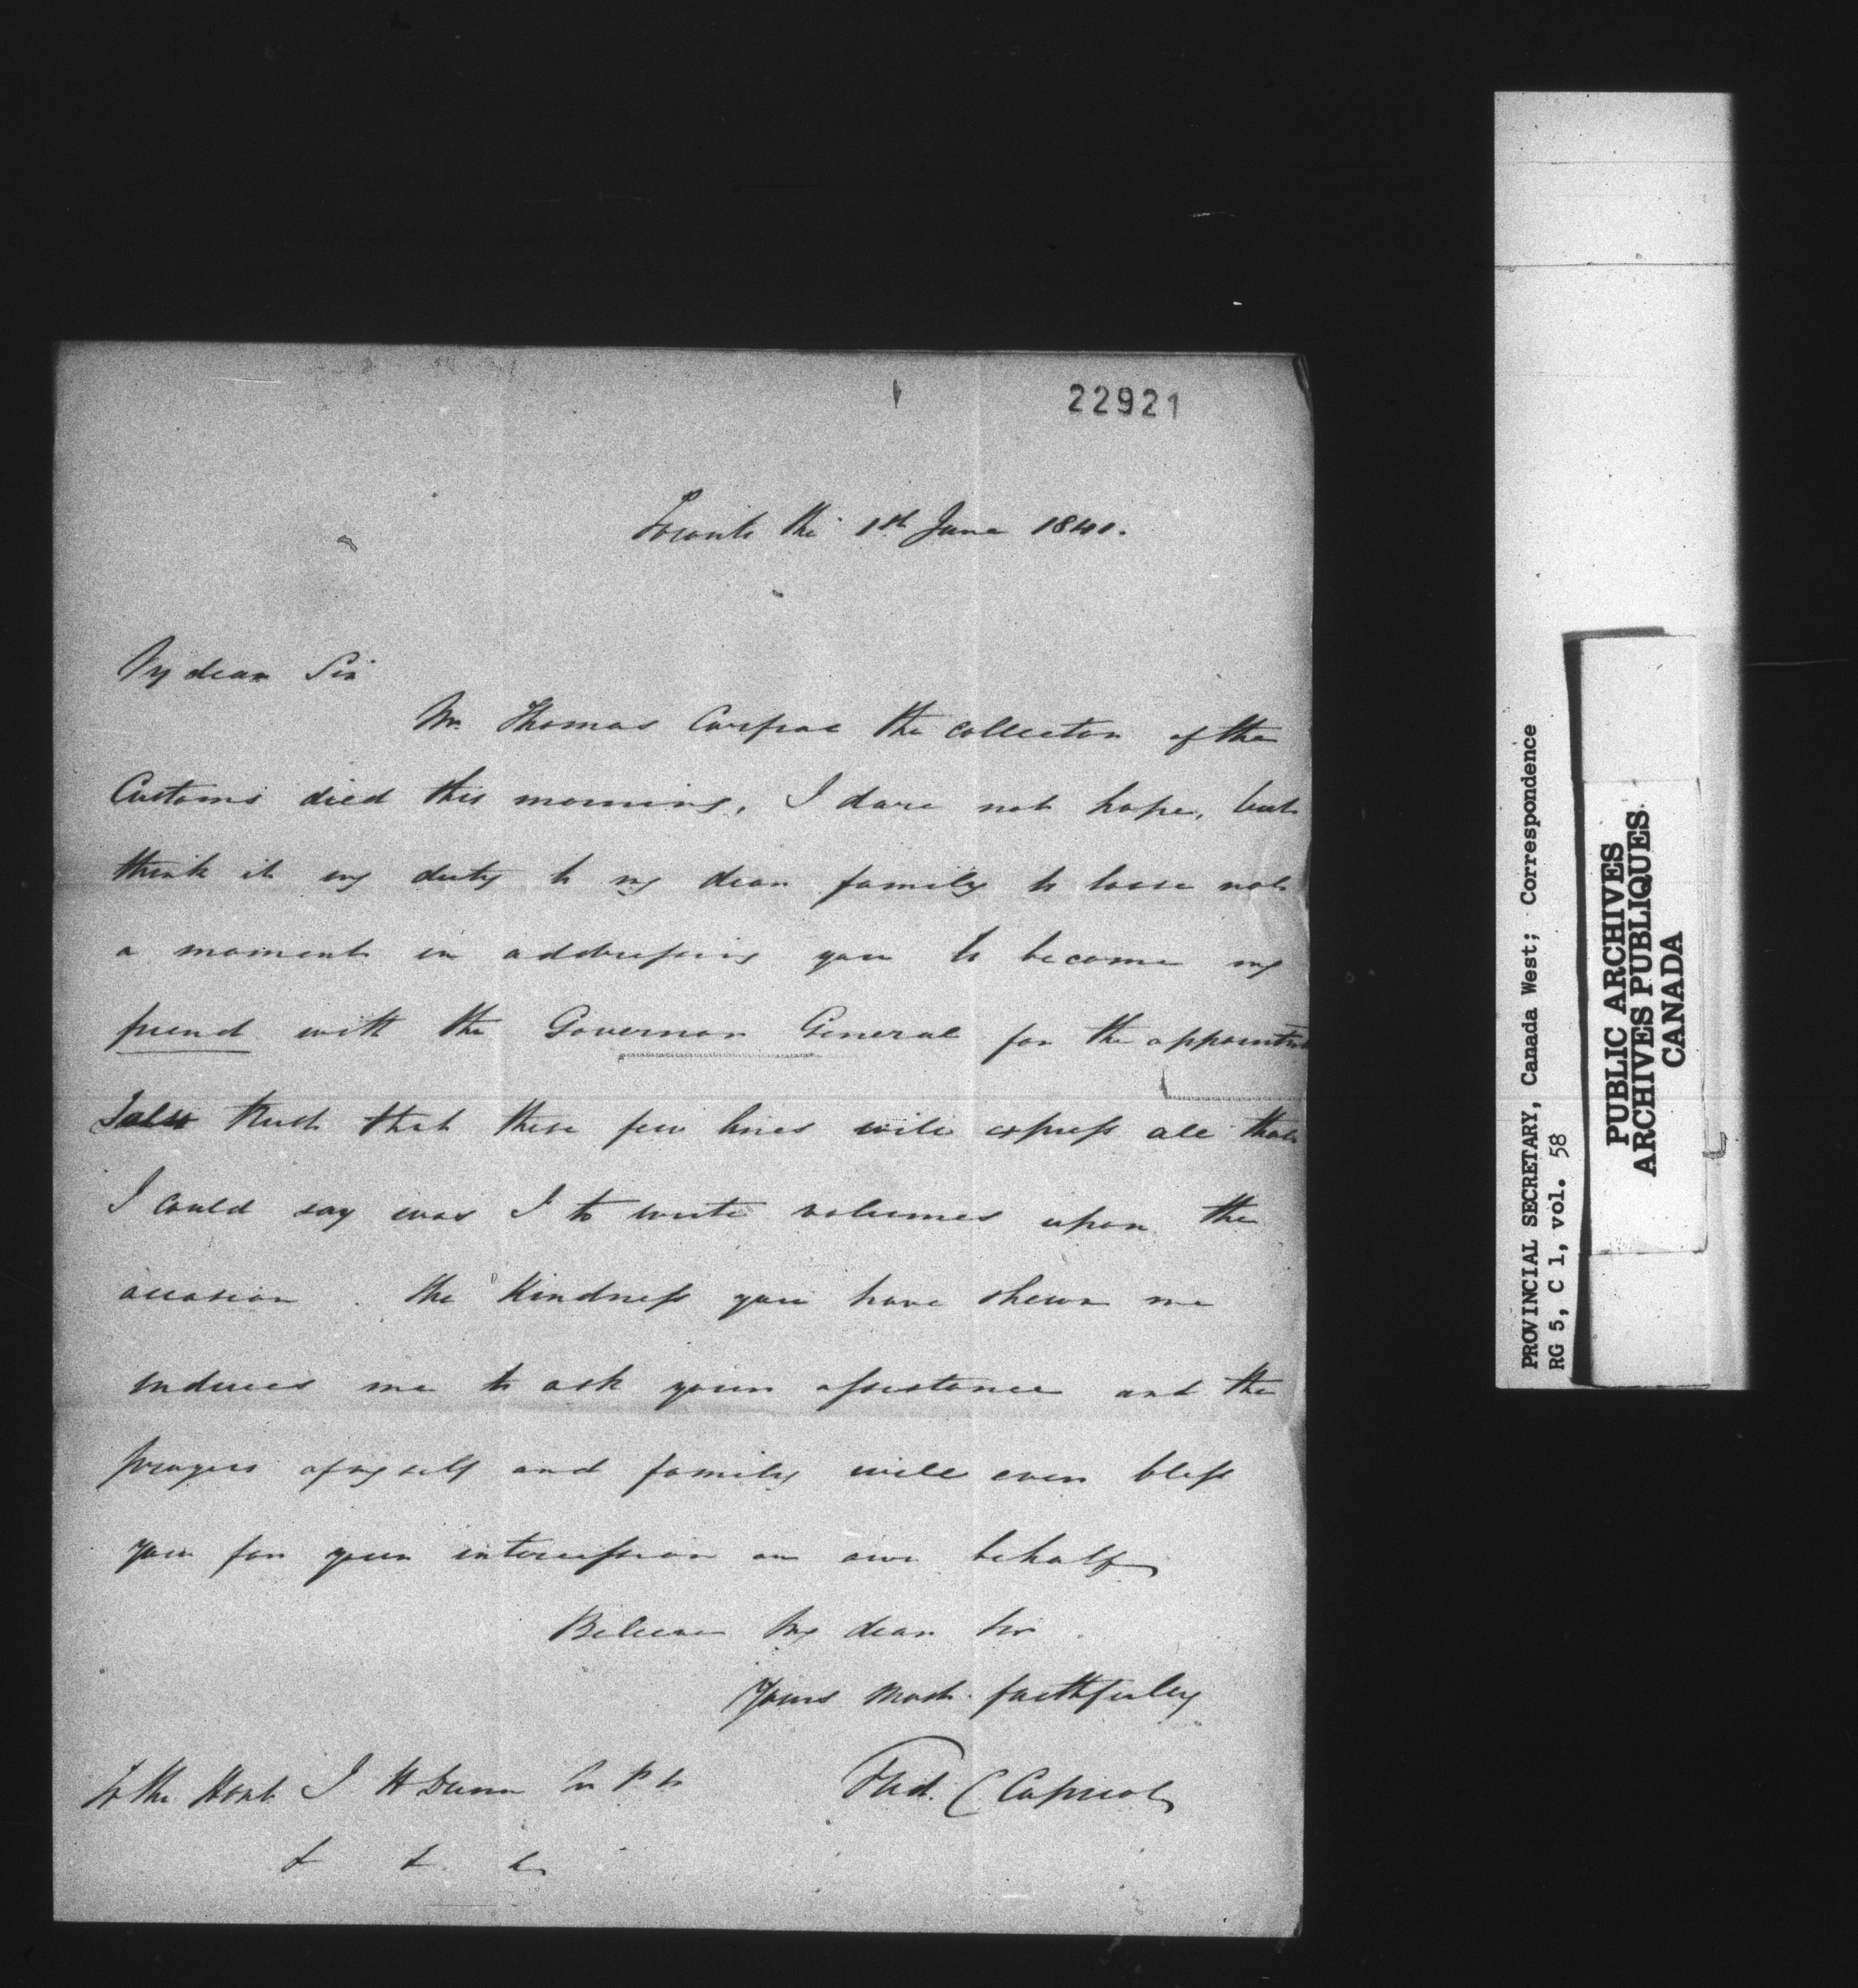 22921
Toronto the 1st June 1841.
My dear Sir
Mr. Thomas Carfrae the collector of the
Customs died this morning, I dare not hope, but
think it my duty to my dear family to loose not
a moment in addressing you to become my
friend with the Governor General for the appointm
I also trust that these few lines will express all that
I could say was I to write volumes upon the
occasion. the Kindness you have shewn me
induces me to ask your assistance and the
prayers of myself and family will ever bless
you for your intercession on our behalf
Believe My dear Sir
Yours Most faithfully
Fred. C Capreol
To the Honl. J H Dunn
& & &
PROVINCIAL SECRETARY, Canada West; Correspondence
RG 5, C 1, vol. 58
PUBLIC ARCHIVES
ARCHIVES PUBLIQUES
CANADA